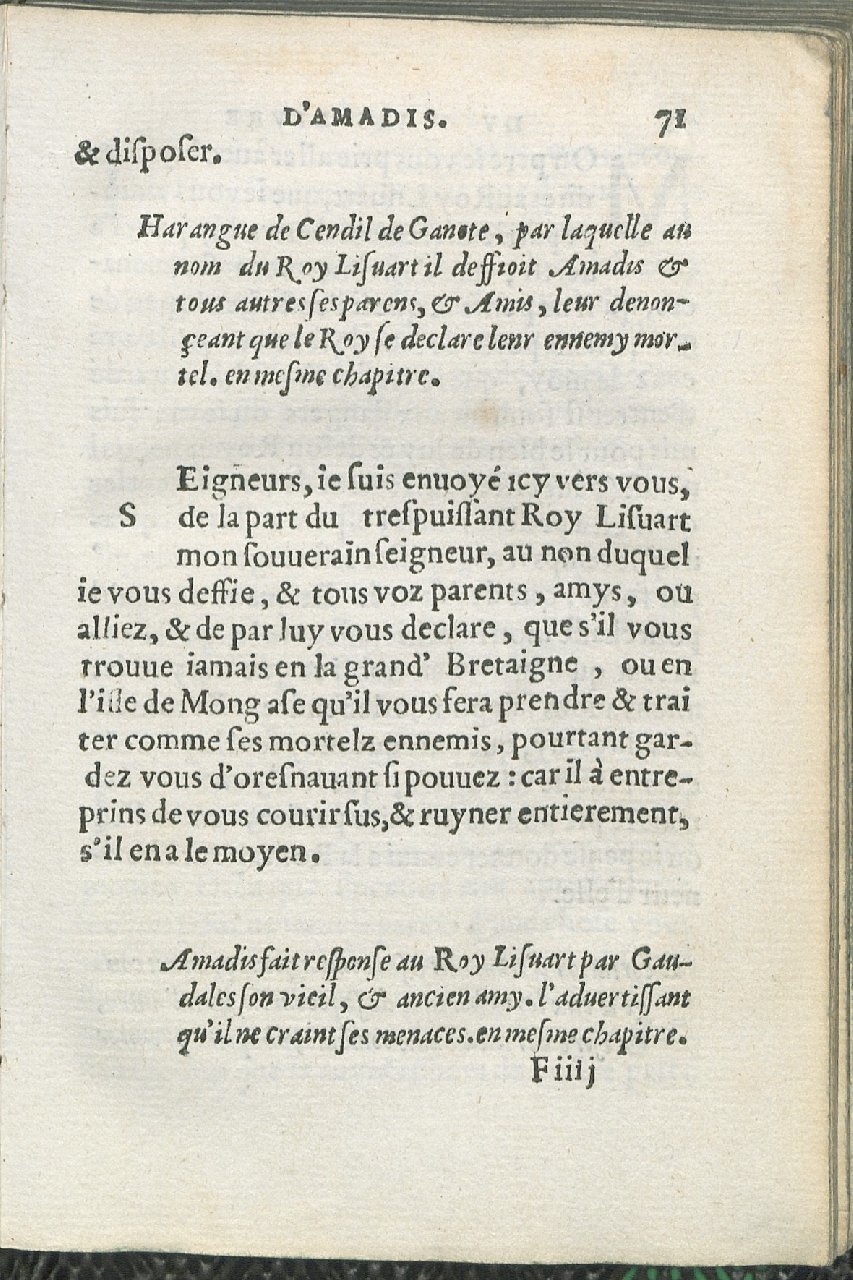 D'AMADIS. 71
& diſpoſer.
Harangue de Cendil de Ganote, par laquelle au
nom du Roy Liſuart il deffioit Amadis &
tous autres ſes parens, & Amis, leur denon-
çeant que le Roy ſe declare lenr ennemy mor-
tel. en meſme chapitre.
Eigneurs, ie ſuis enuoyé icy vers vous,
S de la part du treſpuiſſant Roy Liſuart
mon ſouuerain ſeigneur, au non duquel
ie vous deffie, & tous voz parents, amys, ou
alliez, & de par luy vous declare, que s'il vous
trouue iamais en la grand' Bretaigne, ou en
l'iſle de Mong aſe qu'il vous fera prendre & trai
ter comme ſes mortelz ennemis, pourtant gar-
dez vous d'oreſnauant ſi pouuez : car il à entre-
prins de vous courir ſus, & ruyner entierement,
s'il en a le moyen.
Amadis fait reſponſe au Roy Liſuart par Gau-
dales ſon vieil, & ancien amy. l'aduertiſſant
qu'il ne craint ſes menaces. en meſme chapitre.
F iiij